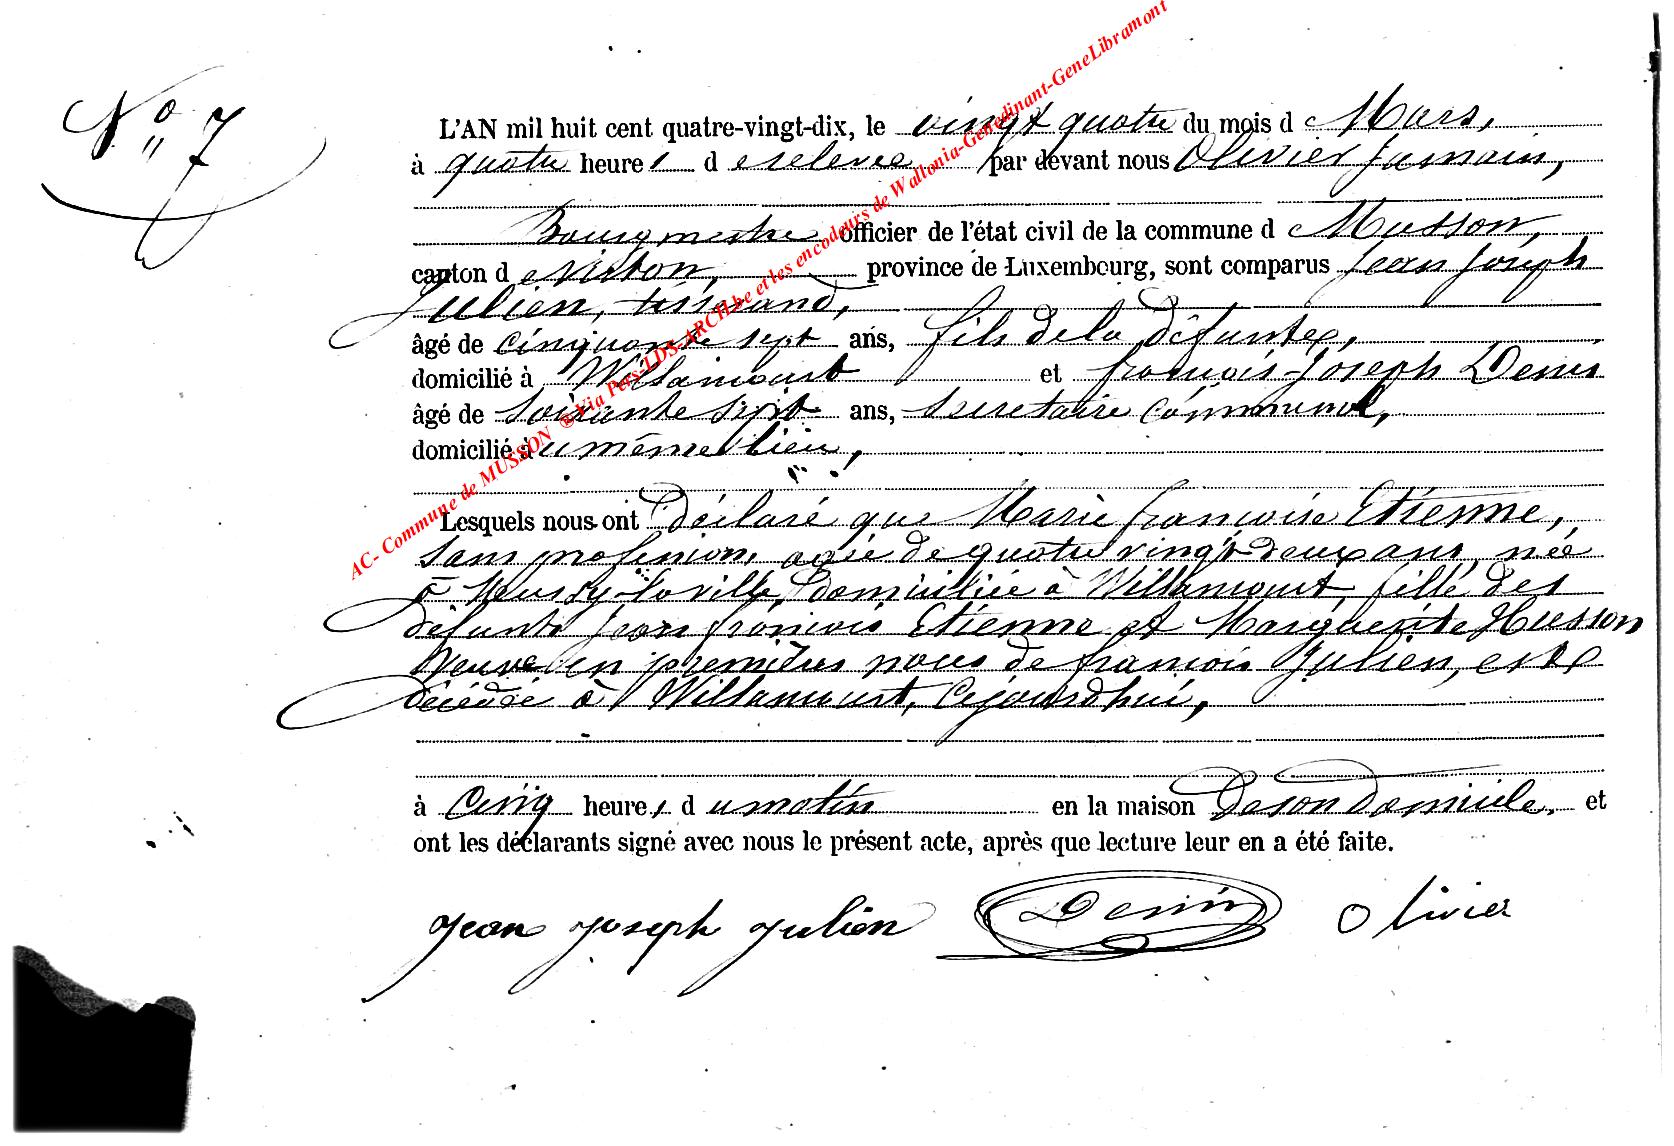 N° 7
L'AN mil huit cent quatre-vingt-dix, le vingt quatre du mois d e Mars,
à quatre heure s d e relevée par devant nous Olivier Jamain,
Bourgmestre officier de l'état civil de la commune d e Musson,
canton d e Virton, province de Luxembourg, sont comparus Jean Joseph
Julien, tisserand,
âgé de cinquante sept ans, fils de la défunte,
domicilié à Willancourt et françois-Joseph Denis
âgé de soixante sept ans, secrétaire communal,
domicilié à u même lieu,
Lesquels nous ont déclaré que Marie françoise Etienne,
sans profession, agée de quatre vingt deux ans, née
à Mussy-la-ville, domiciliée à Willancourt, fille des
défunts Jean françois Etienne et Marguerite Husson
Veuve en premières noces de françois Julien, est
décédée à Willancourt, cejourdhui,
à cinq heure s d u matin en la maison de son domicile, et
ont les déclarants signé avec nous le présent acte, après que lecture leur en a été faite.
Jean Joseph Julien Denis Olivier
AC- Commune de MUSSON ®Via Pers-LDS-ARCH.be et les encodeurs de Wallonia-Genedinant-GeneLibramont